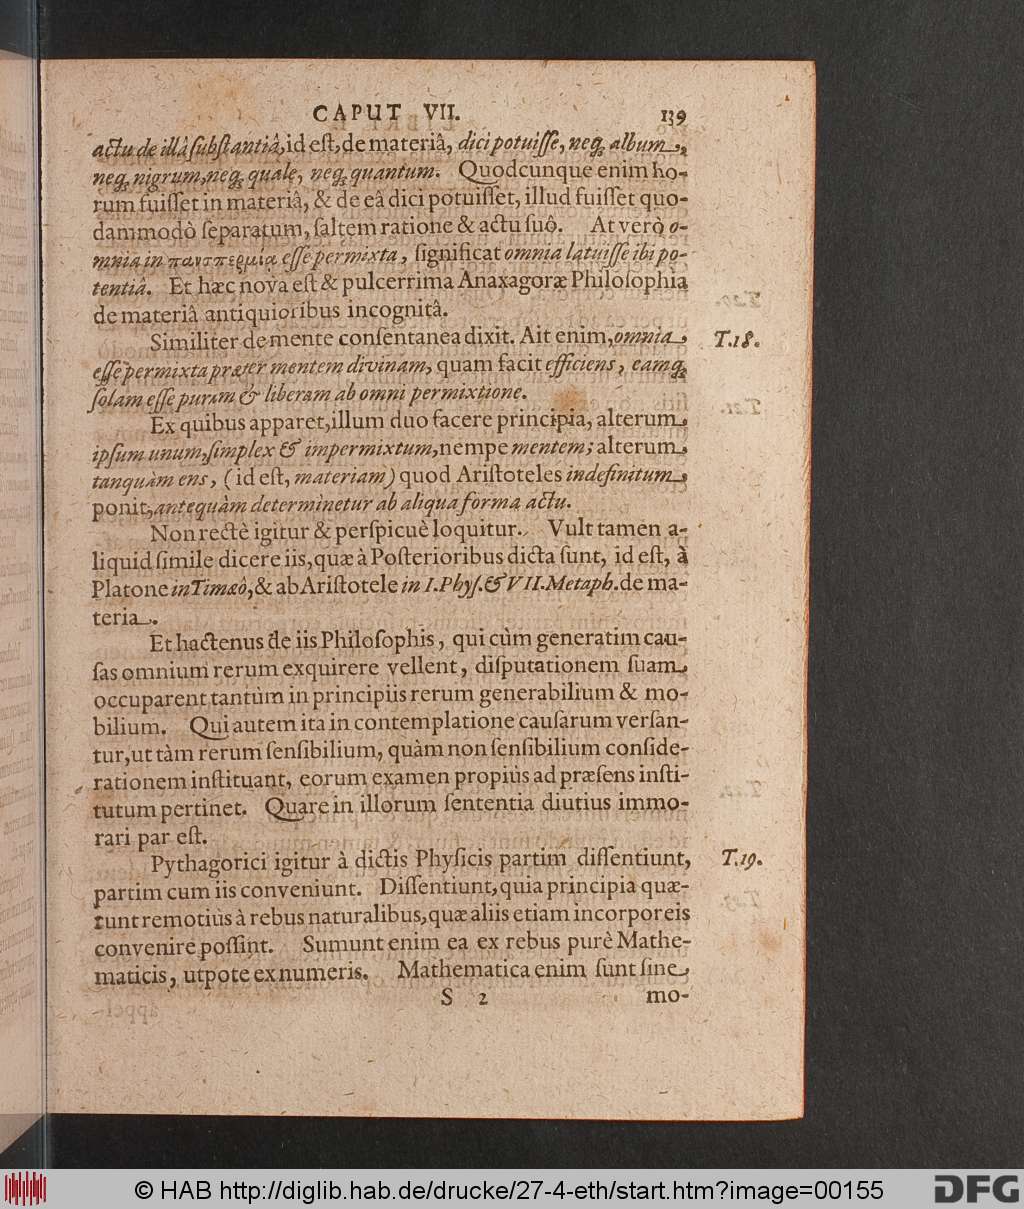 CAPUT VII. 139
actu de illâ ſubſtantiâ, id eſt, de materiâ, dici potuiſſe, neq; album,
neq; nigrum, neq; quale, neq; quantum. Quodcunque enim ho-
rum fuiſſet in materiâ, & de eâ dici potuiſſet, illud fuiſſet quo-
dammodò ſeparatum, ſaltem ratione & actu ſuô. At verò o-
mnia in πανσπερμία eſſe permixta, ſignificat omnia latuiſſe ibi po-
tentiâ. Et hæc nova eſt & pulcerrima Anaxagoræ Philoſophia
de materiâ antiquioribus incognitâ.
Similiter de mente conſentanea dixit. Ait enim, omnia T.18.
eſſe permixta præter mentem divinam, quam facit efficiens, eamq;
ſolam eſſe puram & liberam ab omni permixtione.
Ex quibus apparet, illum duo facere principia, alterum
ipſum unum, ſimplex & impermixtum, nempe mentem; alterum
tanquàm ens, (id eſt, materiam) quod Ariſtoteles indefinitum
ponit, antequàm determinetur ab aliqua forma actu.
Non rectè igitur & perſpicuè loquitur. Vult tamen a-
liquid ſimile dicere iis, quæ à Poſterioribus dicta ſunt, id eſt, à
Platone in Timæô, & ab Ariſtotele in I. Phyſ. & VII. Metaph. de ma-
teria.
Et hactenus de iis Philoſophis, qui cùm generatim cau-
ſas omnium rerum exquirere vellent, diſputationem ſuam
occuparent tantùm in principiis rerum generabilium & mo-
bilium. Qui autem ita in contemplatione cauſarum verſan-
tur, ut tàm rerum ſenſibilium, quàm non ſenſibilium conſide-
rationem inſtituant, eorum examen propiùs ad præſens inſti-
tutum pertinet. Quare in illorum ſententia diutius immo-
rari par eſt.
Pythagorici igitur à dictis Phyſicis partim diſſentiunt, T.19.
partim cum iis conveniunt. Diſſentiunt, quia principia quæ-
runt remotiùs à rebus naturalibus, quæ aliis etiam incorporeis
convenire poſſint. Sumunt enim ea ex rebus purè Mathe-
maticis, utpote ex numeris. Mathematica enim ſunt ſine
S 2 mo-
© HAB http://diglib.hab.de/drucke/27-4-eth/start.htm?image=00155
DFG